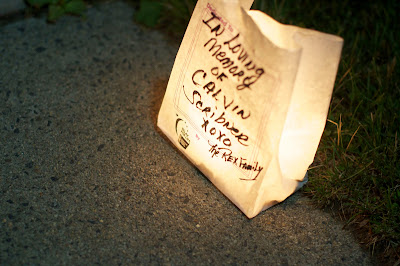 In Loving
Memory
OF
CALVIN
Scribner
XOXO
The Rex Family